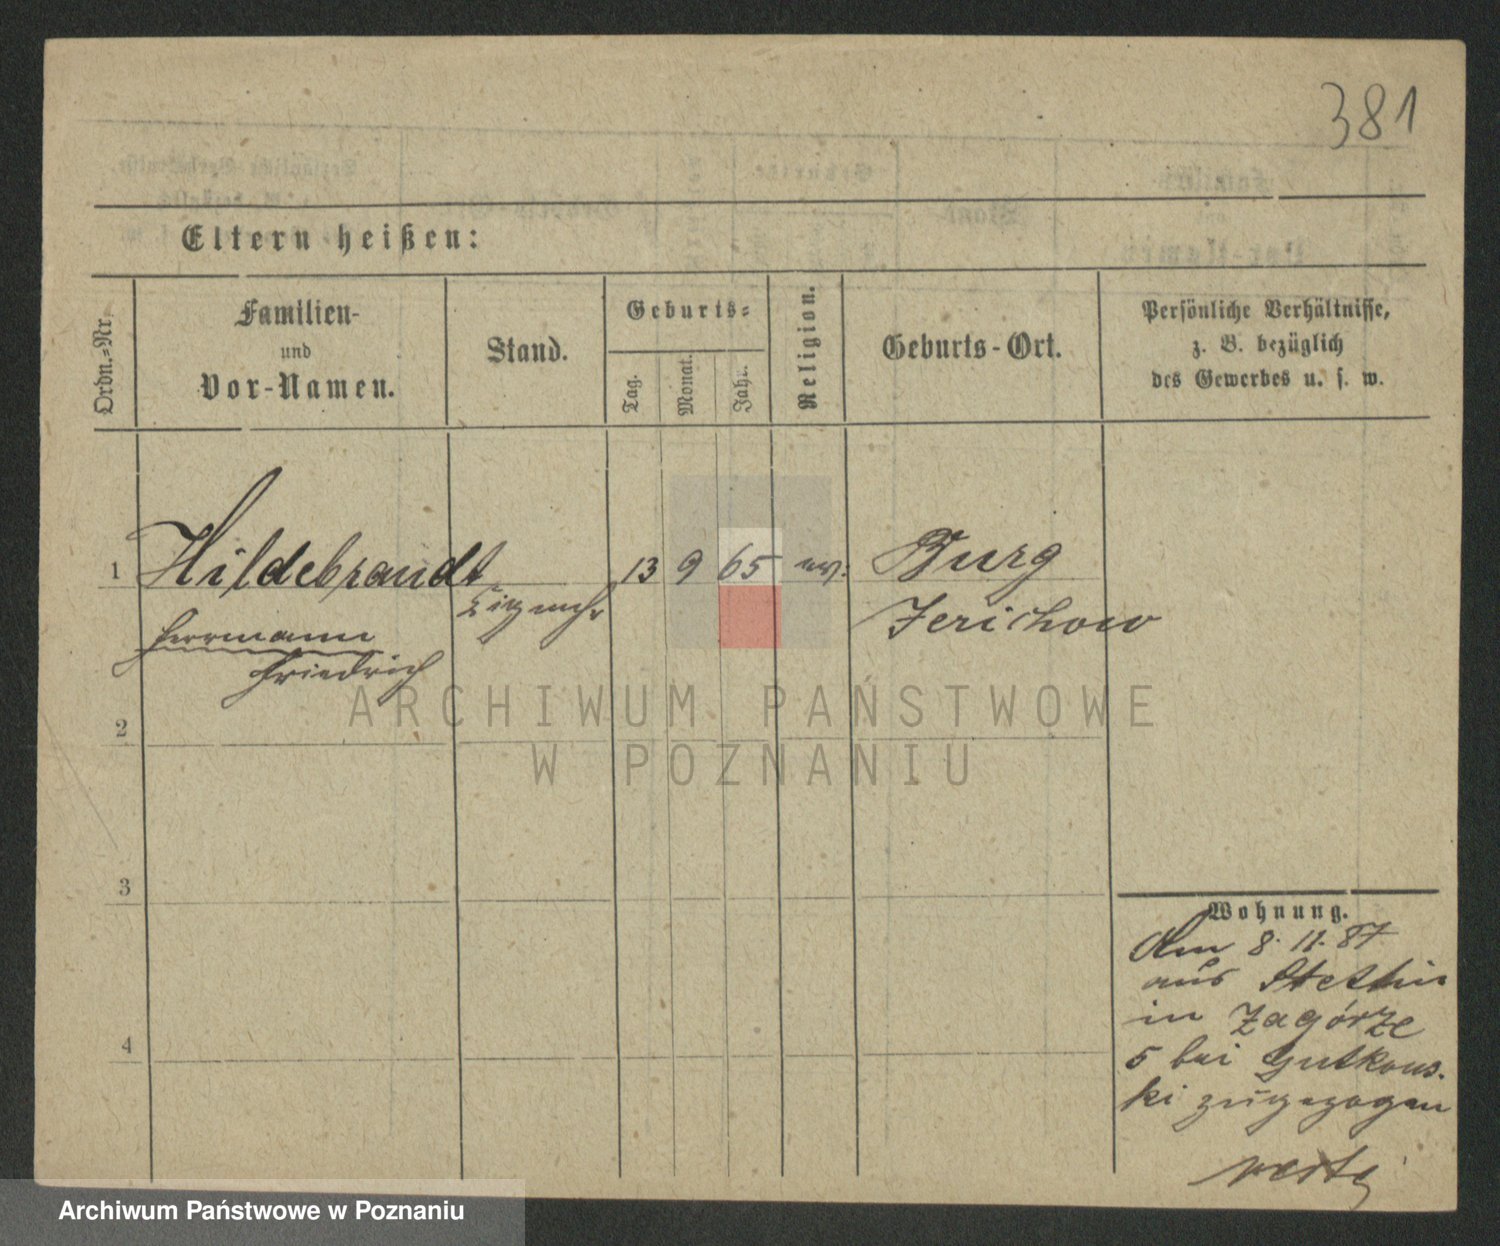 381
Eltern heißen:
Ordn.-Nr.
Familien-
und
Vor-Namen.
Stand.
Geburts-
Tag.
Monat.
Jahr.
Religion.
Geburts-Ort.
Persönliche Verhältnisse,
z. B. bezüglich
des Gewerbes u. s. w.
1 Hildebrandt 13 9 65 ev. Burg
Herrmann Jerichow
Friedrich
2
3
4
Wohnung.
Am 8. 11. 87
aus Stettin
in Zagórze
5 bei Gutkows-
ki zugezogen
ARCHIWUM PAŃSTWOWE
W POZNANIU
Archiwum Państwowe w Poznaniu